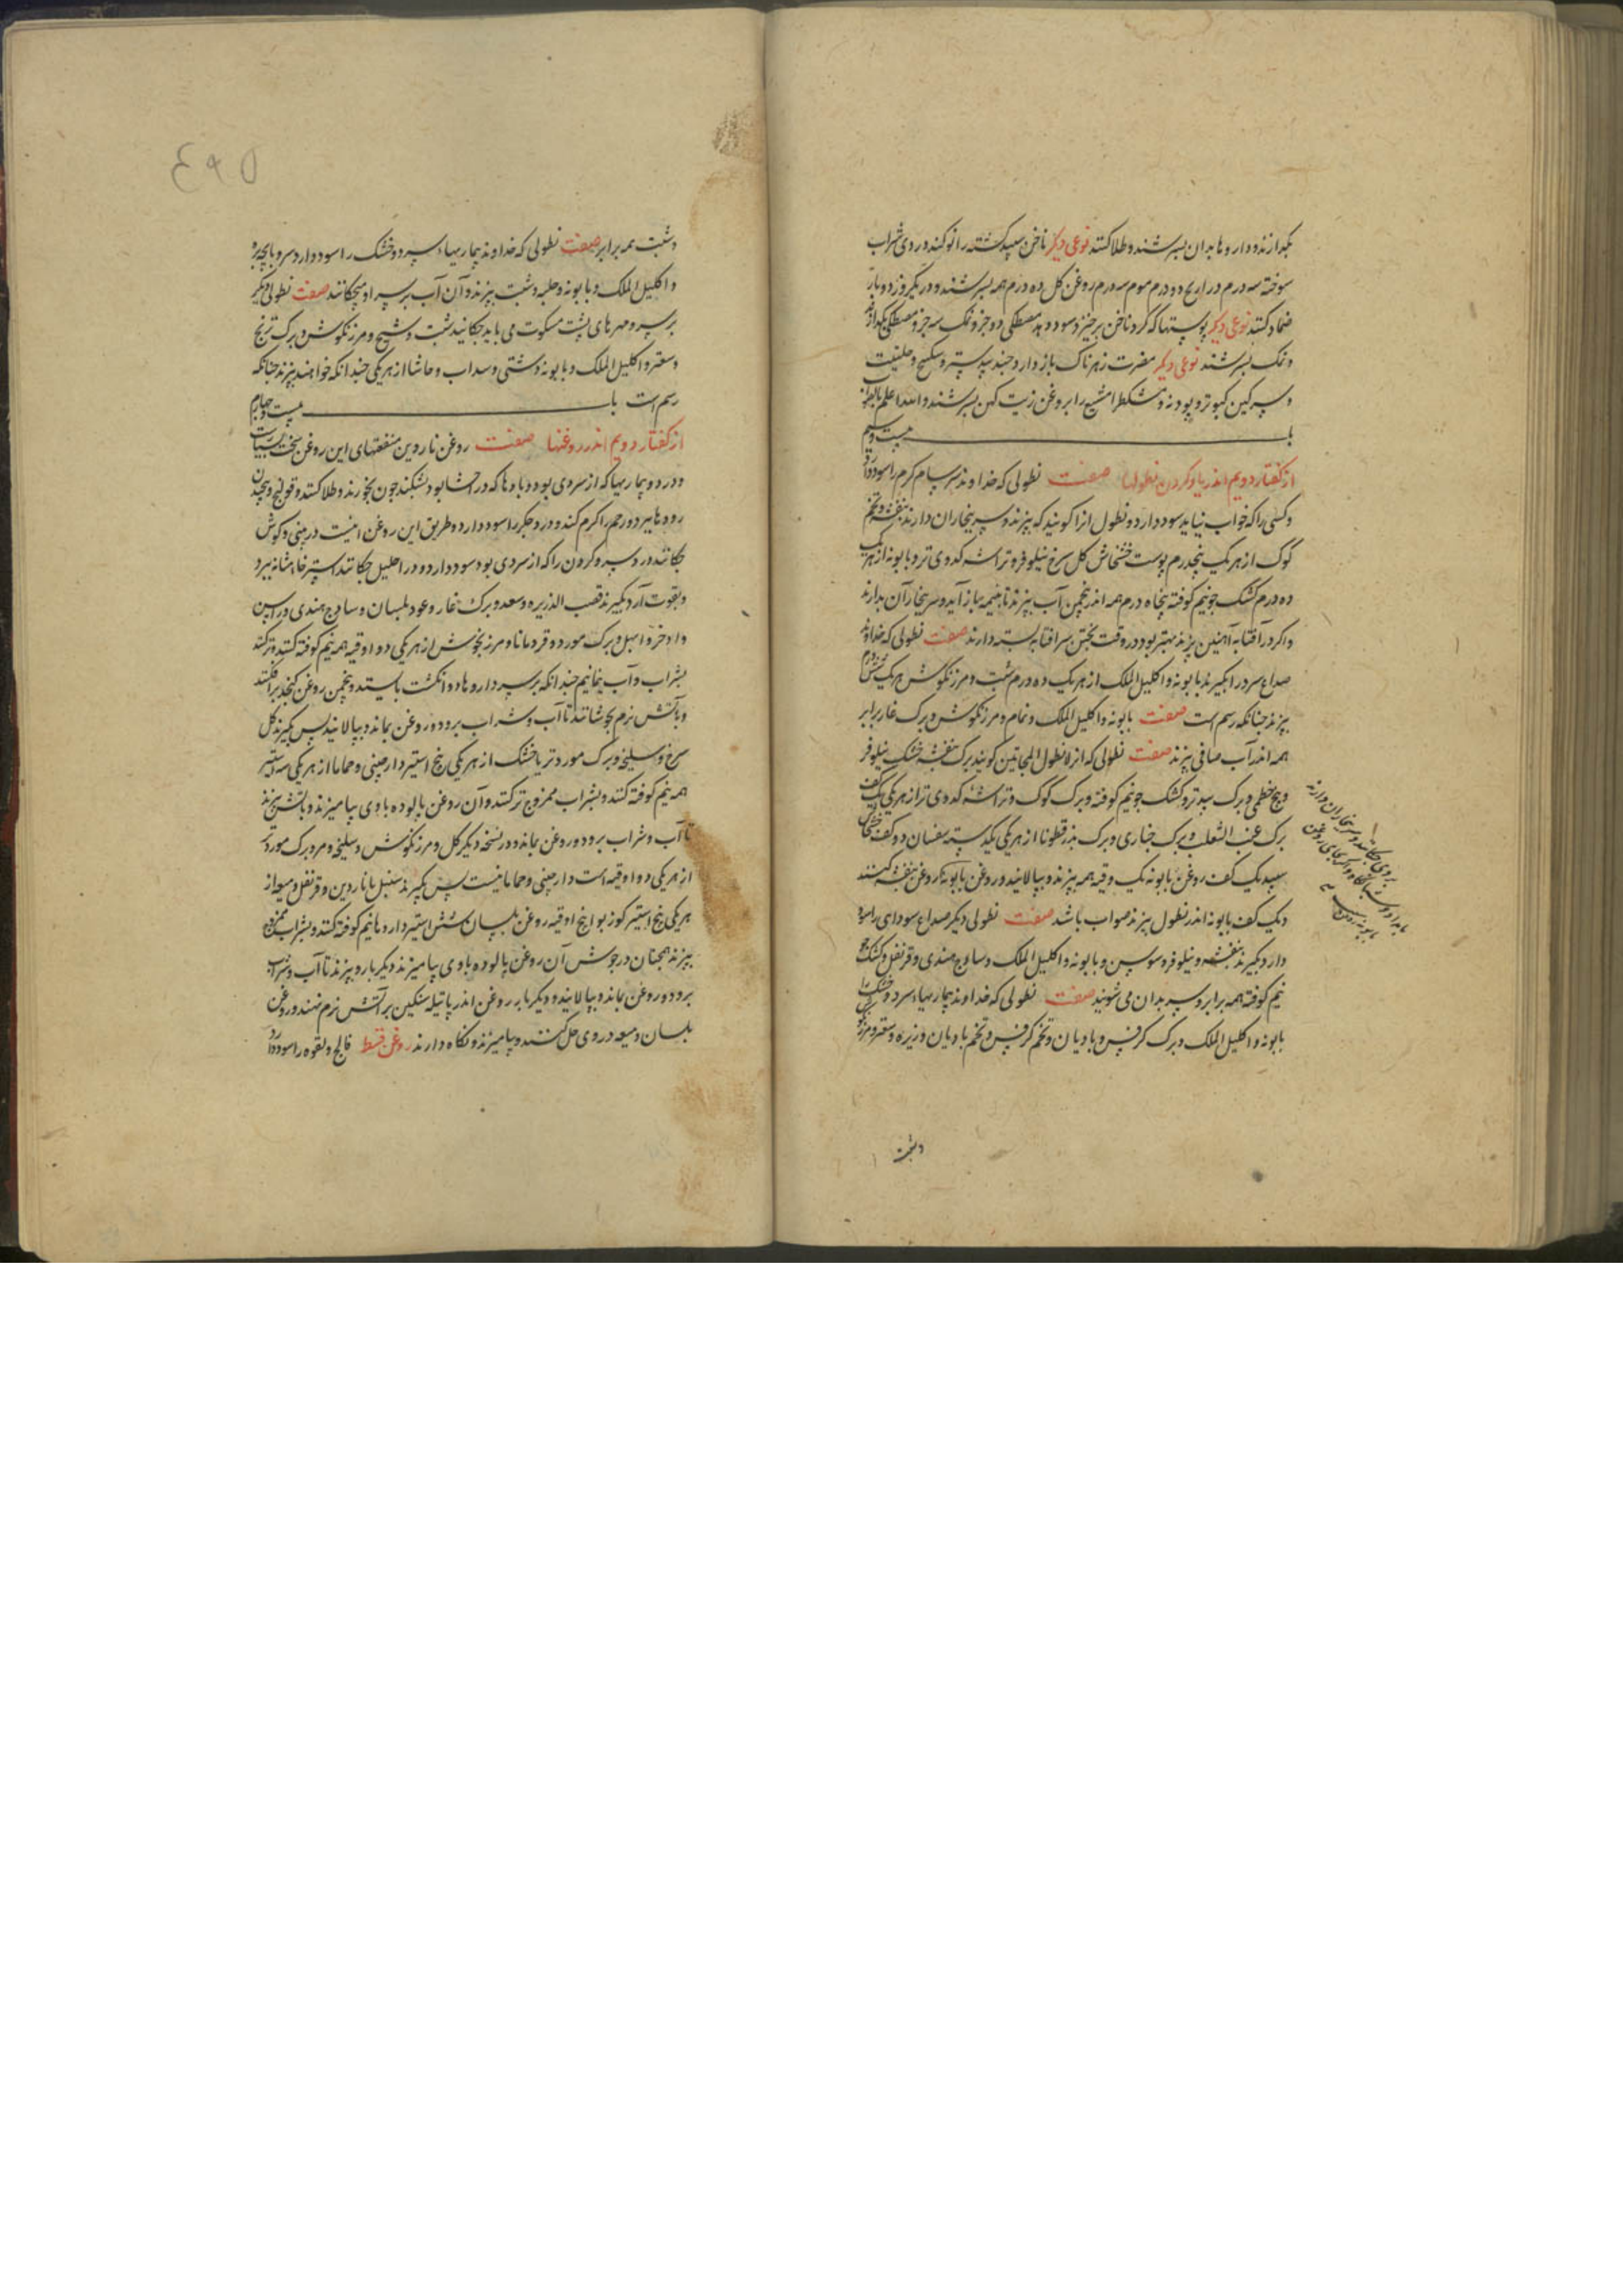 بکدازند و داروها بدان بسرشند و طلا کنند نوعی دیکر ناخن سپید کشته را نو کند دردی شراب
سوخته سه درم زراریح دو درم موم سه درم روغن کل ده درم همه بسرشند و در یکروز دو بار
ضماد کنند نوعی دیکر پوستها که کرد ناخن برخیزد سود دهد مصطکی دو جزو نمک سه جزو مصطکی بکدازند
و نمک بسرشند نوعی دیکر مضرت زهرناک باز دارد جندبیدستر و سکبینج و حلتیت
و سرکین کبوتر و پودنه و مشکطرامشیع را بروغن زیت کهن بسرشند والله اعلم
باب بیست و سیم
از کفتار دویم اندر یاد کردن نطولها صفت نطولی که خداوند سرسام کرم را سود دارد
و کسی را که خواب نیاید سود دارد و نطول انرا کویند که بپزند و سر ببخار ان دارند بنفشه و تخم
کوک از هر یک پنجدرم پوست خشخاش کل سرخ نیلوفر و تراشه کدوی تر و بابونه از هر یک
ده درم کشک جو نیم کوفته پنجاه درم همه اندر پنجمن آب بپزند تا بنیمه باز آید و سر ببخار آن بدارند
و اکر در آفتابه آهنین بپزند بهتر بود در وقت پختن سر افتابه بسته دارند صفت نطولی که خداوند
صداع سرد را بکیرند بابونه و اکلیل الملک از هر یک ده درم شبت و مرزنکوش هر یک شش درم
بپزند چنانکه رسم است صفت بابونه و اکلیل الملک و نمام و مرزنکوش و برک غار برابر
همه اندر آب صافی بپزند صفت نطولی که انرا نطول المجانین کویند برک بنفشه خشک نیلوفر
و بیخ خطمی و برک بید تر و کشک جو نیم کوفته و برک کوک و تراشه کدوی تر از هر یکی یک کف
برک عنب الثعلب و برک خبازی و برک بذرقطونا از هر یکی یکدسته سفسان دو کف خشخاش
سپید یک کف روغن بابونه یک وقیه همه بپزند و بپالایند و روغن بابونه کر روغن بنفشه کنند
و یک کف بابونه اندر نطول بپزند صواب باشد صفت نطولی دیکر صداع سودای را سود
دارد بکیرند بنفشه و نیلوفر و سوسن و بابونه و اکلیل الملک و ساذج هندی و قرنفل و کشک جو
نیم کوفته همه برابر و سر بدان می شویند صفت نطولی که خداوند بیماریهاء سرد و خشک را
بابونه و اکلیل الملک و برک کرفس و بادیان و تخم کرفس و تخم بادیان و زیره و سعتر و مرزنکوش
بروی چکانند و سر ببخار ان دارند
بامداد و شبانکاه و اکر بجای روغن
بابونه روغن
وشبت
۴۹۵
وشبت همه برابر صفت نطولی که خداوند بیماریهاء سرد و خشک را سود دارد سر و پاچه بره
و اکلیل الملک و بابونه و حلبه و شبت بپزند و آن آب بر سر او میچکانند صفت نطولی دیکر
بر سر و مهرهای پشت مسکوت می باید چکانید شبت و شیح و مرزنکوش و برک ترنج
و سعتر و اکلیل الملک و بابونه دشتی و سداب و حاشا از هر یکی چندانکه خواهند بپزند چنانکه
رسم است باب بیست و چهارم
از کفتار دویم اندر روغنها صفت روغن ناردین منفعتهای این روغن سخت بسیارست
و درد و بیماریها که از سردی بود و بادها که در احشا بود بشکند چون بخورند و طلا کنند و قولنج و پیچیدن
رودها ببرد و رحم را کرم کند و درد جکر را سود دارد و طریق این روغن انیست در بینی و کوش
چکانند درد سر و کردن را که از سردی بود سود دارد و در احلیل چکانند استرخاء مثانه ببرد
و بقوت آرد بکیرند قصب الذریره و سعد و برک غار و عود بلسان و ساذج هندی و راسن
و اذخر و ابهل و برک مورد و قردمانا و مرزنجوش از هر یکی دو اوقیه همه نیم کوفته کنند و تر کنند
بشراب و آب بنمانیم چندانکه بر سر داروها دو انکشت بایستد و پنجمن روغن کنجد برافکنند
و بآتش نرم بجوشانند تا آب و شراب برود و روغن بماند و بپالایند پس بکیرند کل
سرخ و سلیخه و برک مورد تر یا خشک از هر یکی پنج استیر دارچینی و حماما از هر یکی سه استیر
همه نیم کوفته کنند و بشراب ممزوج تر کنند و آن روغن پالوده با وی بیامیزند و باتش بپزند
تا آب و شراب برود و روغن بماند و در نسخه دیکر کل و مرزنکوش و سلیخه و مر و برک مورد تر
از هر یکی دو اوقیه است دارچینی و حماما نیست پس بکیرند سنبل یا ناردین و قرنفل و میعه از
هر یکی پنج استیر کوز بوا پنج اوقیه روغن بلسان شش استیر داروها نیم کوفته کنند و بشراب ممزوج
بپزند همچنان در جوش آن روغن پالوده با وی بیامیزند دیکر بار و بپزند تا آب و شراب
برود و روغن بماند و بپالایند و دیکر بار روغن اندر پاتیله سنکین بر آتش نرم نهند و روغن
بلسان و میعه در وی حل کنند و بیامیزند و نکاه دارند روغن قسط فالج و لقوه را سود دارد